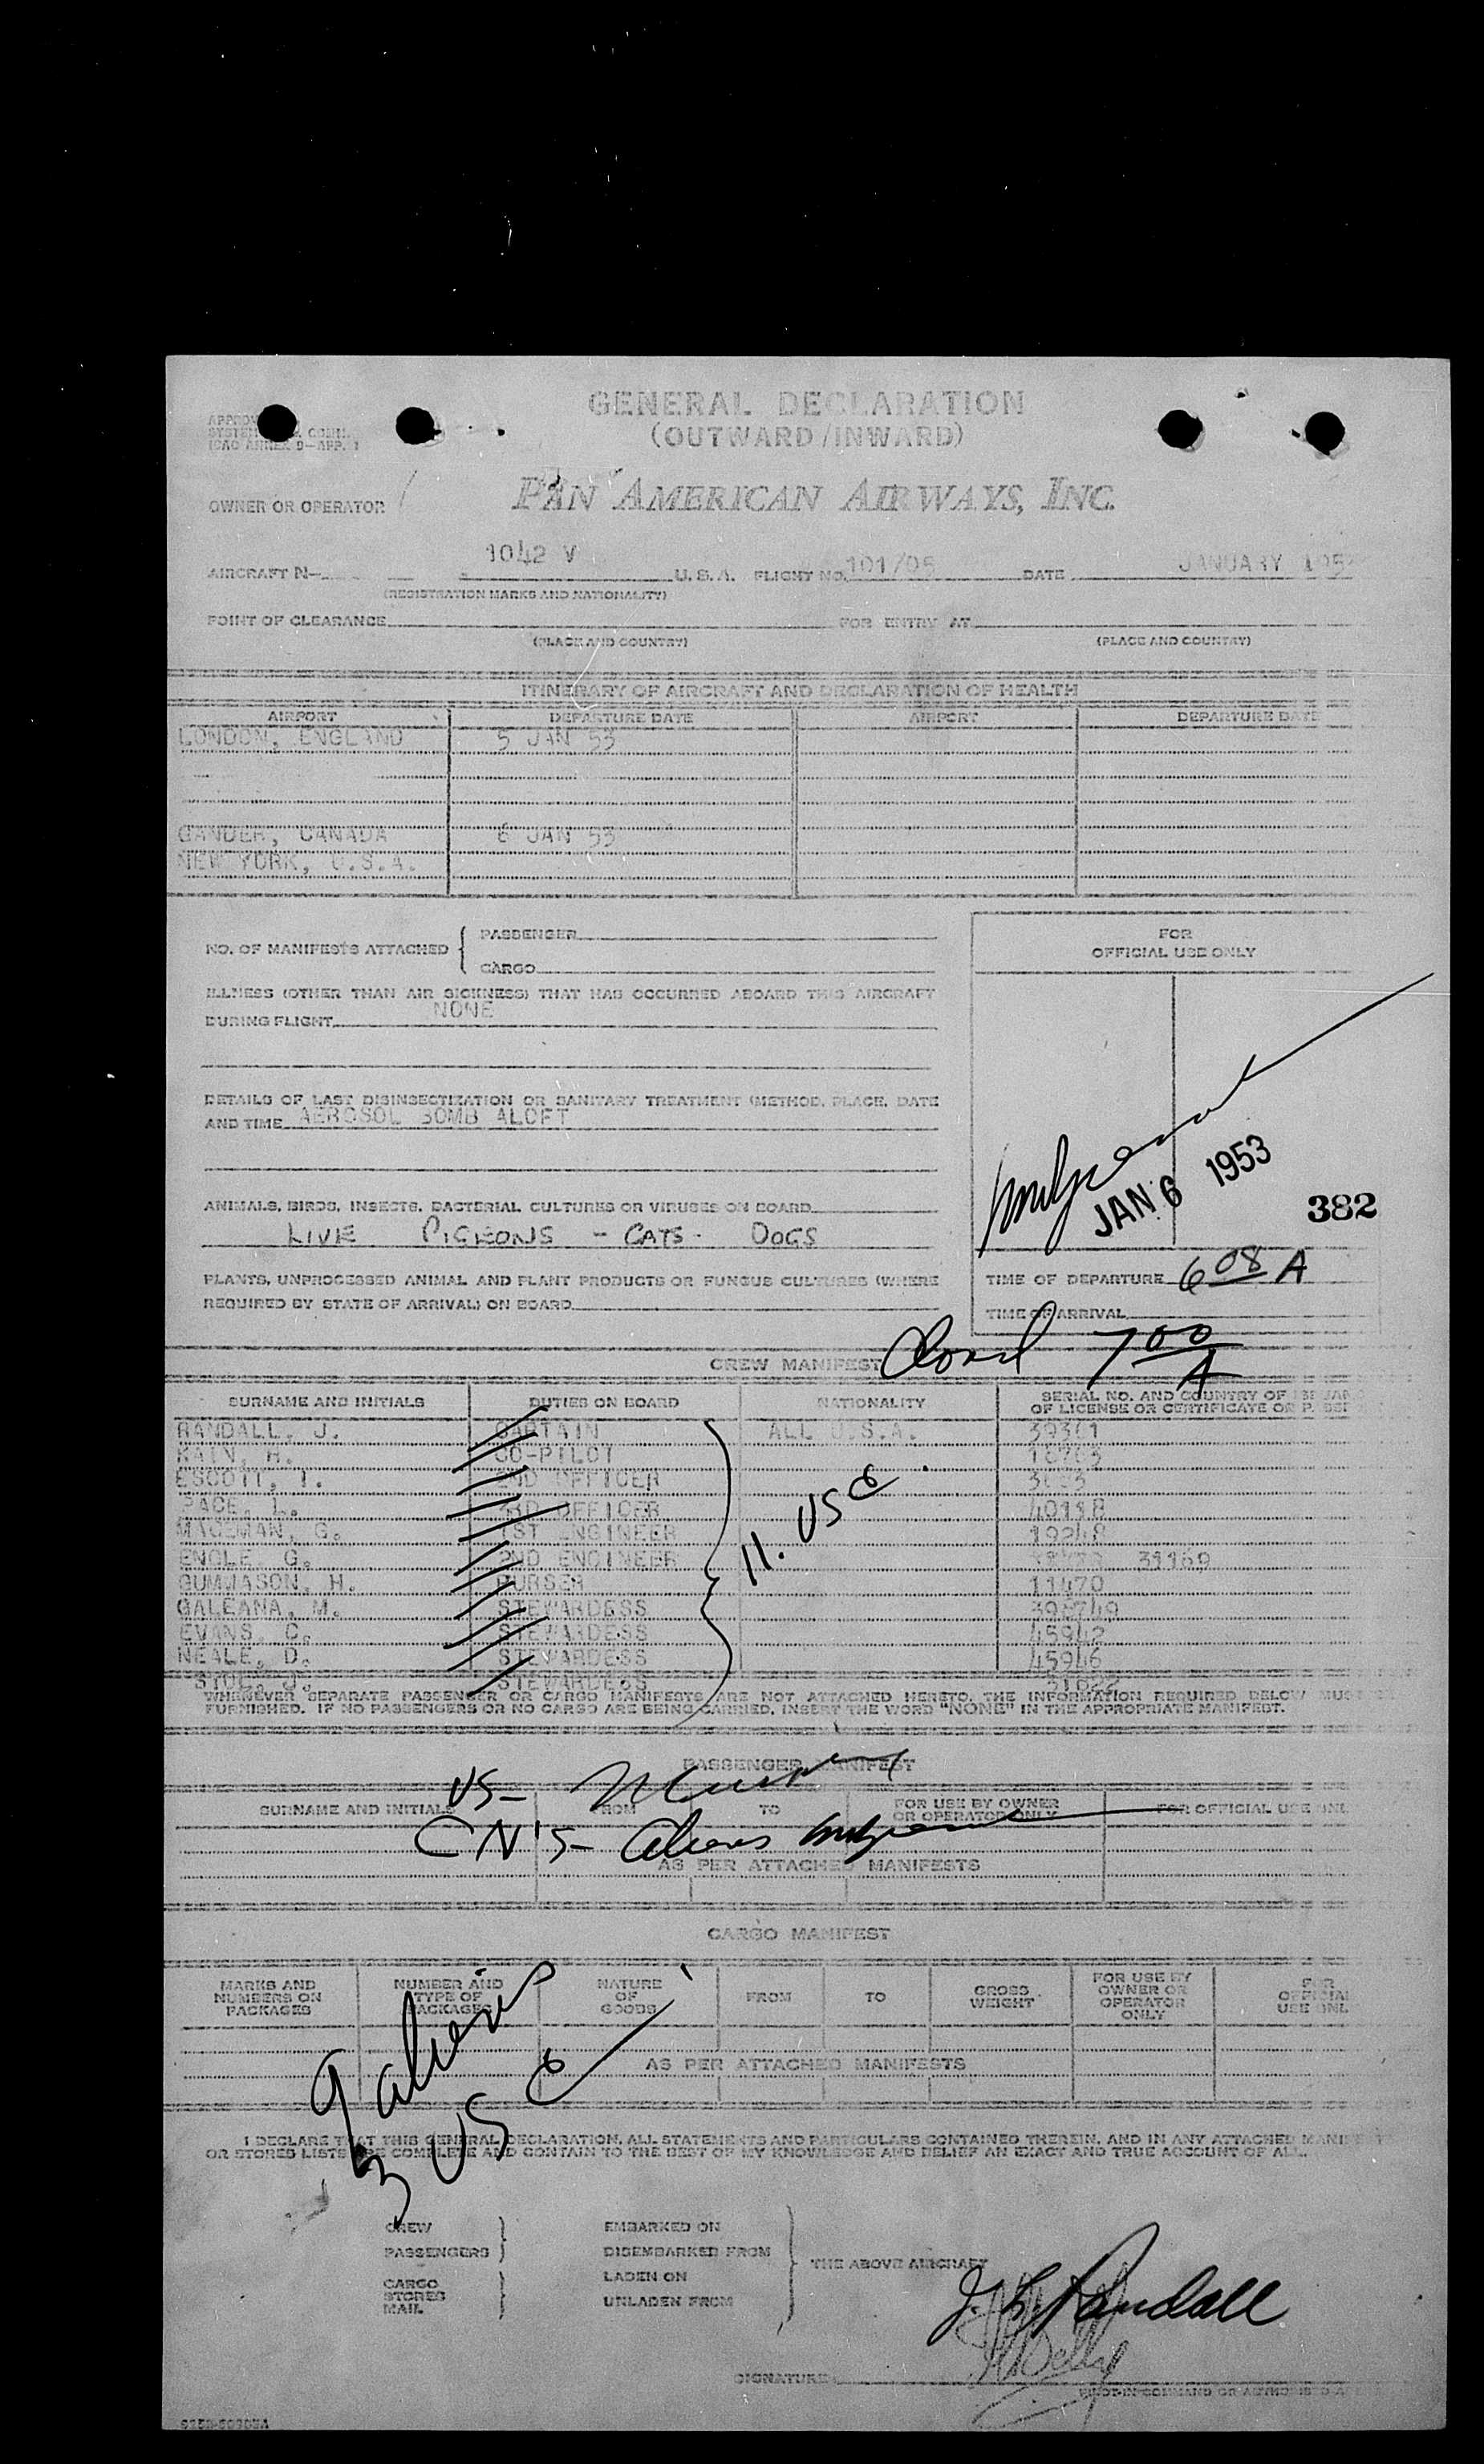 GENERAL DECLARATION
(OUTWARD/INWARD)
ICAO ANNEX 9—APP. 1
OWNER OR OPERATOR
PAN AMERICAN AIRWAYS, INC.
AIRCRAFT N— 1042 V U. S. A. FLIGHT NO. 101/05 DATE JANUARY 195
(REGISTRATION MARKS AND NATIONALITY)
POINT OF CLEARANCE FOR ENTRY AT
(PLACE AND COUNTRY) (PLACE AND COUNTRY)
ITINERARY OF AIRCRAFT AND DECLARATION OF HEALTH
AIRPORT DEPARTURE DATE AIRPORT DEPARTURE DATE
LONDON, ENGLAND 5 JAN 53
GANDER, CANADA 6 JAN 53
NEW YORK, U.S.A.
NO. OF MANIFESTS ATTACHED { PASSENGER
CARGO
FOR
OFFICIAL USE ONLY
ILLNESS (OTHER THAN AIR SICKNESS) THAT HAS OCCURRED ABOARD THIS AIRCRAFT
DURING FLIGHT NONE
DETAILS OF LAST DISINSECTIZATION OR SANITARY TREATMENT (METHOD, PLACE, DATE
AND TIME AEROSOL BOMB ALOFT
JAN 6 1953
382
ANIMALS, BIRDS, INSECTS, BACTERIAL CULTURES OR VIRUSES ON BOARD
LIVE PIGEONS - CATS - DOGS
PLANTS, UNPROCESSED ANIMAL AND PLANT PRODUCTS OR FUNGUS CULTURES (WHERE
REQUIRED BY STATE OF ARRIVAL) ON BOARD
TIME OF DEPARTURE 6 08 A
TIME OF ARRIVAL
Closed 7 00 A
CREW MANIFEST
SURNAME AND INITIALS DUTIES ON BOARD NATIONALITY SERIAL NO. AND COUNTRY OF
OF LICENSE OR CERTIFICATE OR
RANDALL, J. CAPTAIN ALL U.S.A. 39361
KAIN, H. CO-PILOT
ESCOTT, T. 2ND OFFICER
PACE, L. 3RD OFFICER 40118
G. 1ST ENGINEER 19248
ENGLE, G. 2ND ENGINEER 31169
H. PURSER 11470
GALEANA, M. STEWARDESS
EVANS, C. STEWARDESS 45942
NEALE, D. STEWARDESS 45946
J. STEWARDESS 31622
11. USC
WHENEVER SEPARATE PASSENGER OR CARGO MANIFESTS ARE NOT ATTACHED HERETO, THE INFORMATION REQUIRED BELOW MUST
FURNISHED. IF NO PASSENGERS OR NO CARGO ARE BEING CARRIED, INSERT THE WORD "NONE" IN THE APPROPRIATE MANIFEST.
PASSENGER MANIFEST
US -
SURNAME AND INITIALS FROM TO FOR USE BY OWNER
OR OPERATOR ONLY FOR OFFICIAL USE ONL
CN'S - Aliens
AS PER ATTACHED MANIFESTS
CARGO MANIFEST
MARKS AND
NUMBERS ON
PACKAGES NUMBER AND
TYPE OF
PACKAGES NATURE
OF
GOODS FROM TO GROSS
WEIGHT FOR USE BY
OWNER OR
OPERATOR
ONLY FOR
OFFICIAL
USE ONL
AS PER ATTACHED MANIFESTS
9 aliens
3 USC
I DECLARE THAT THIS GENERAL DECLARATION, ALL STATEMENTS AND PARTICULARS CONTAINED THEREIN, AND IN ANY ATTACHED MANIFE
OR STORES LISTS ARE COMPLETE AND CONTAIN TO THE BEST OF MY KNOWLEDGE AND BELIEF AN EXACT AND TRUE ACCOUNT OF ALL.
CREW EMBARKED ON
PASSENGERS DISEMBARKED FROM
THE ABOVE AIRCRAFT
CARGO LADEN ON
STORES
MAIL UNLADEN FROM
J. L. Randall
SIGNATURE